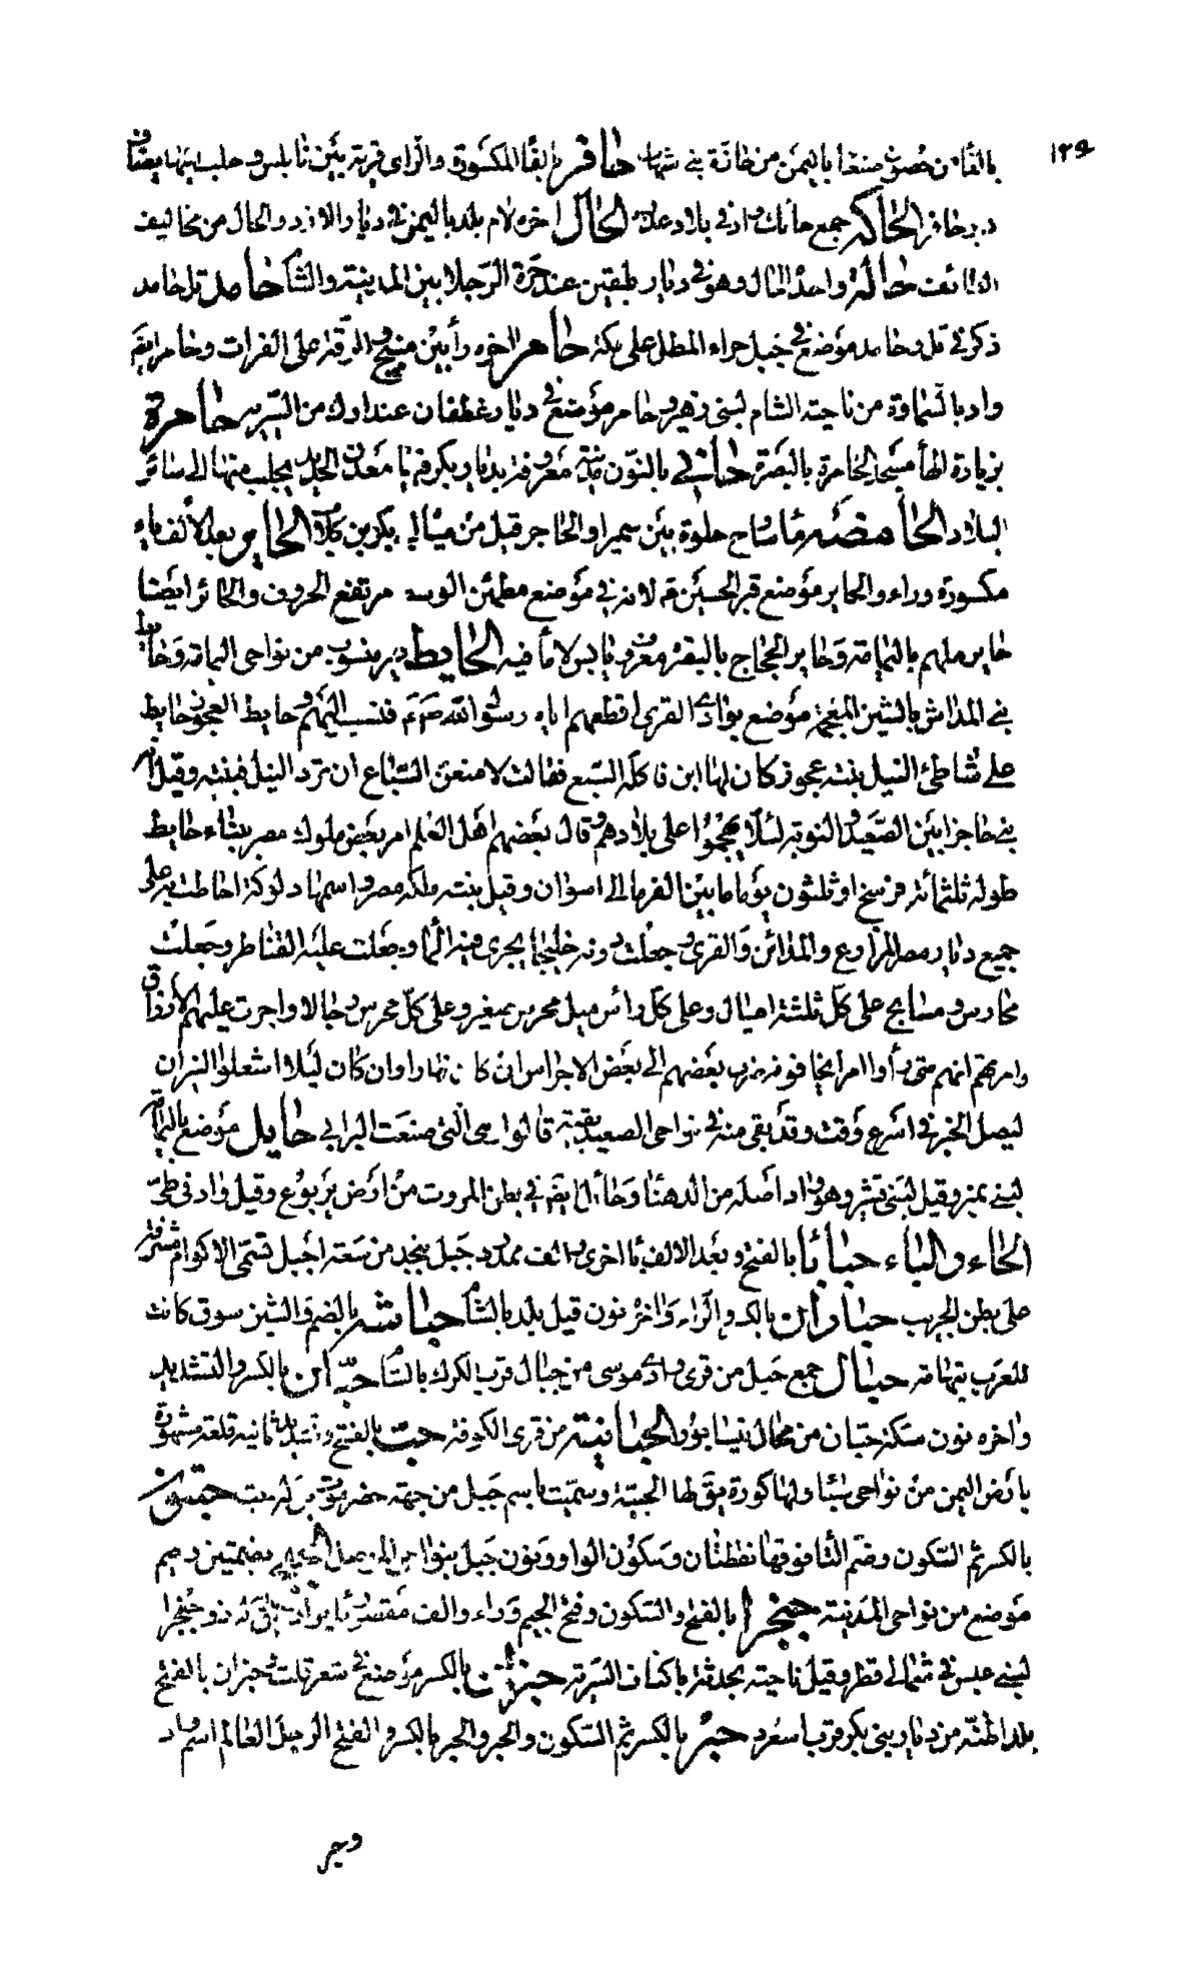 ١٢٩
بالفا من حصون صنعا باليمن من حازة بني شهاب حافر بالفا المكسورة والراى قرية بين بالس وحلب اليها يضاف
دير حافر الحاكة جمع حائك واد في بلاد عذرة الحال اخره لام بلد باليمن في ديار الازد والحال من مخاليف
الطائف حالة واحد الحال وهو في ديار بلقين عند حرة الرجلا بين المدينة والشام حامد تل حامد
ذكر في تل وحامد موضع في جبل حراء المطل على مكة حامر اخره را بين منبج والرقة على الفرات وحامر ايضا
واد بالسماوة من ناحية الشام لبني زهير وحامر موضع في ديار غطفان عند ارك من الشربة حامرة
بزيادة الهأ مسجد الحامرة بالبصرة حاني بالنون مدينة معروفة بديار بكر فيها معدن الحديد يجلب منها الى سائر
البلاد الحامضة ماء سماح حلوة بين سميرا والحاجر قيل من مياه ابي بكر بن كلاب الحاير بعد الألف ياء
مكسورة وراء والحاير موضع قبر الحسين لانه في موضع مطمئن الوسط مرتفع الحروف والحائر ايضا
حاير ملهم باليمامة وحاير الحجاج بالبصرة معروف يابس لا ماء فيه الحايط دير منسوب من نواحي اليمامة وحايط
بني المداش بالشين المعجمة موضع بوادي القرى اقطعهم اياه رسول الله فنسب اليهم وحايط العجوز حايط
على شاطئ النيل بنته عجوز كان لها ابن فاكله السبع فقالت لامنعن السباع ان ترد النيل فبنته وقيل انه
بني حاجزا بين الصعيد والنوبة لئلا يهجموا على بلادهم وقال بعضهم اهل العلم امر بعض ملوك مصر ببناء حايط
طوله ثلثمائة فرسخ او ثلثون يوما ما بين الفرما الى اسوان وقيل بنته ملكة مصر واسمها دلوكة احاطت به على
جميع ديار مصر المزارع والمدائن والقرى وجعلت دونه خليجا يجرى فيه الماء وجعلت عليه القناطر وجعلت
محارس ومسالح على كل ثلثة اميال وعلى كل رأس ميل محرس صغير وعلى كل محرس رجالا واجرت عليهم الأرزاق
وامرتهم انهم متى رأوا امرا يخافونه ضرب بعضهم الى بعض الاجراس ان كان نهارا وان كان ليلا اشعلوا النيران
ليصل الخبر في اسرع وقت وقد بقى منه في نواحي الصعيد بقية قالوا هي التي صنعت البرابي حايل موضع باليمامة
لبني نمير وقيل لبني قشير وهو واد اصله من الدهنا وحائل ايضا في بطن المروت من ارض يربوع وقيل واد في طيء
الحاء والباء حبابا بالفتح وبعد الالف با اخرى والف ممدود جبل بنجد من سبعة اجبل تسمى الاكوام مشرفة
على بطن الجريب حباران بالكسر والراء واخره نون قيل بلد بالشام حباشة بالضم والشين سوق كانت
للعرب بتهامة حبال جمع حبل من قرى وادى موسى من جبال قرب الكرك بالشام حبان بالكسر والتشديد
واخره نون سكة حبان من محال نيسابور الحبانية من قرى الكوفة حب بالفتح وتشديد ثانيه قلعة مشهورة
بارض اليمن من نواحي سبا ولها كورة يقال لها الحبية وسميت باسم جبل من جهة حضرموت حبتون
بالكسر ثم السكون وضم التا فوقها نقطتان وسكون الواو ونون جبل بنواحي الموصل بضمتين وجيم
موضع من نواحي المدينة حبجرا بالفتح والسكون وفتح الجيم وراء والف مقصورة ما بواد يقال له ذو حبجرا
لبني عبس في شمالي قطن وقيل ناحية بحدثة باكناف الشربة حبران بالكسر موضع في شعر قلت حبران بالفتح
بلد اظنه من ديار بني بكر قرب اسعرد حبر بالكسر ثم السكون والحبر والحبر بالكسر والفتح الرجل العالم اسم واد
وحبر